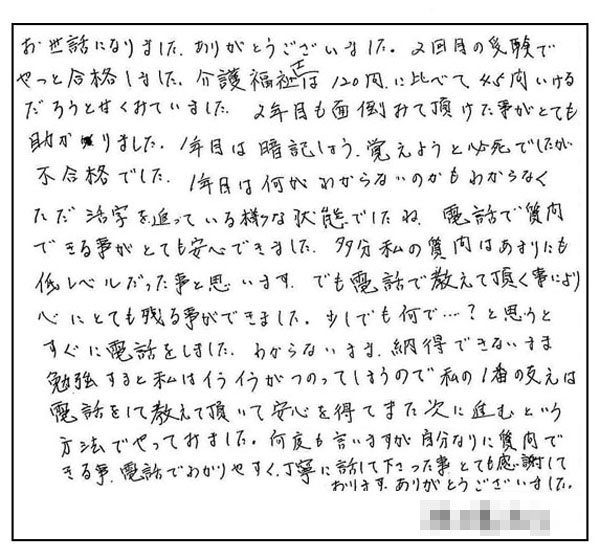 お世話になりました。ありがとうございました。2回目の受験で
やっと合格しました。介護福祉士は120問に比べて45問いける
だろうとなくみていました。2年目も面倒みて頂けた事がとても
助かりました。1年目は暗記しよう、覚えようと必死でしたが
不合格でした。1年目は何がわからないのかもわからなく
ただ活字を追っている様な状態でしたね。電話で質問
できる事がとても安心できました。多分私の質問はあまりにも
低レベルだった事と思います。でも電話で教えて頂く事により
心にとても残る事ができました。少しでも何で…?と思うと
すぐに電話をしました。わからないまま、納得できないまま
勉強すると私はイライラがつのってしまうので私の1番の支えは
電話をして教えて頂いて安心を得てまた次に進むという
方法でやっておました。何度も言いますが自分なりに質問で
きる事、電話でわかりやすく、丁寧に話して下さった事とても感謝して
おります。ありがとうございました。